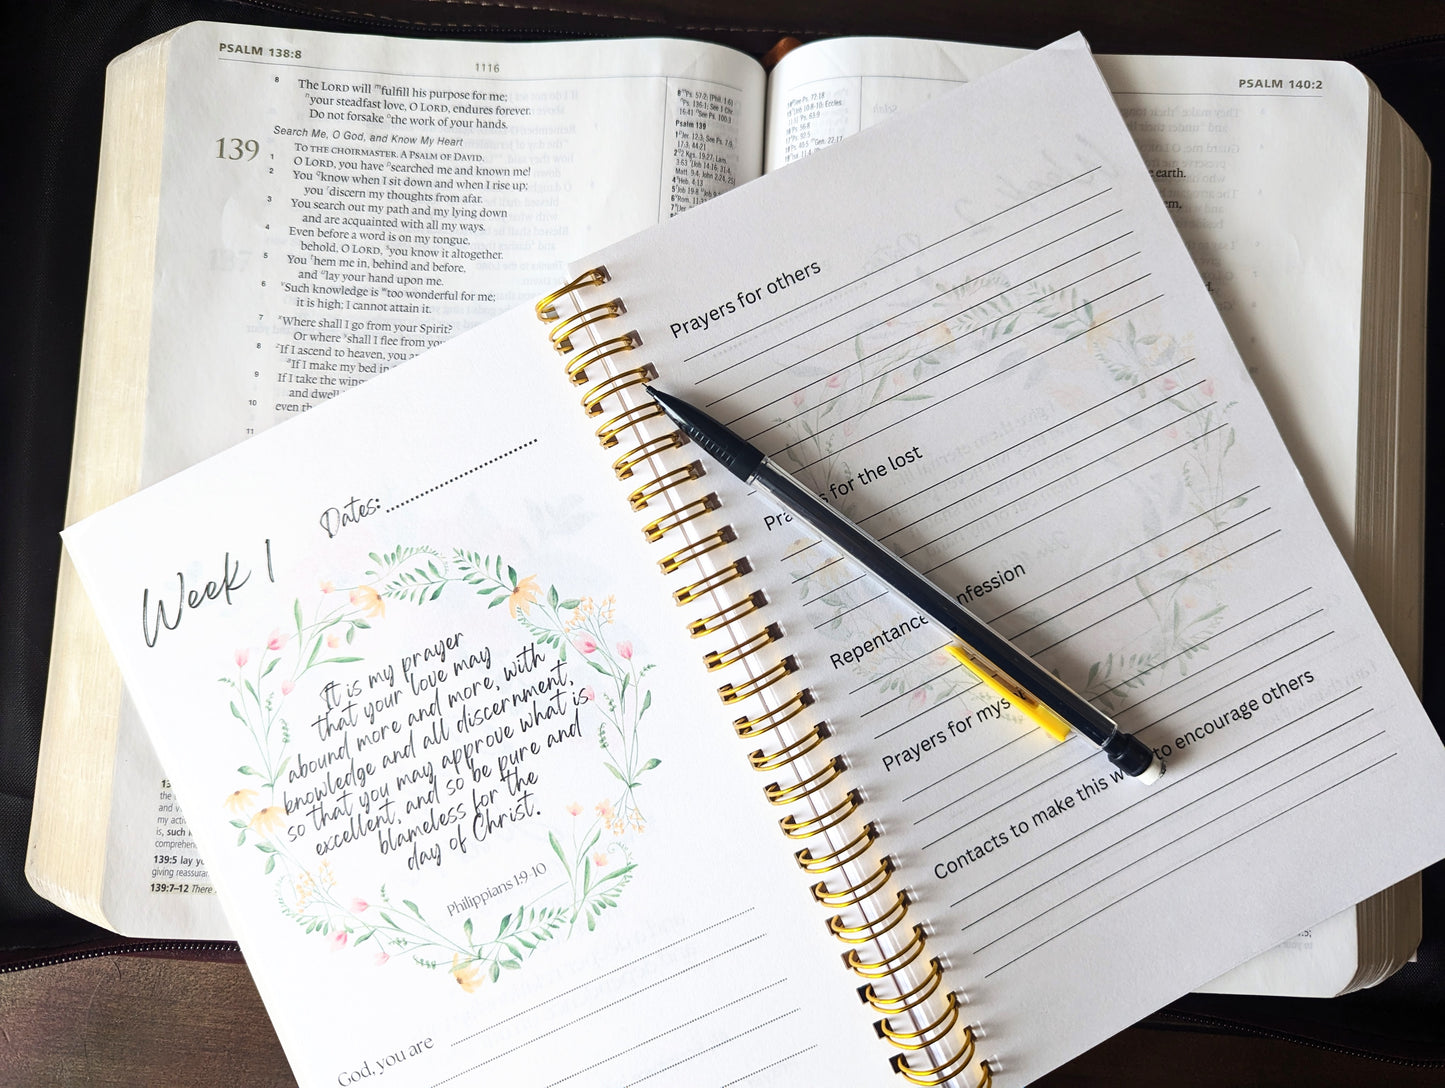 PSALM 138:8
1116
8 The LORD will ᵐfulfill his purpose for me;
ⁿyour steadfast love, O LORD, endures forever.
Do not forsake ᵒthe work of your hands.
Search Me, O God, and Know My Heart
139
TO THE CHOIRMASTER. A PSALM OF DAVID.
1 O LORD, you have ᵖsearched me and known me!
2 You know when I sit down and when I rise up;
you discern my thoughts from afar.
3 You search out my path and my lying down
and are acquainted with all my ways.
4 Even before a word is on my tongue,
behold, O LORD, ˢyou know it altogether.
5 You ᵗhem me in, behind and before,
and ᵘlay your hand upon me.
6 ᵛSuch knowledge is ʷtoo wonderful for me;
it is high; I cannot attain it.
7 ˣWhere shall I go from your Spirit?
Or where shall I flee from you
8 ᶻIf I ascend to heaven, you a
ᵃIf I make my bed in
9 If I take the wing
and dwel
10 even th
11
Psalm 139
PSALM 140:2
earth.
139:5 lay yo
giving reassuran
139:7–12 There
Week 1
Dates:
It is my prayer
that your love may
abound more and more, with
knowledge and all discernment,
so that you may approve what is
excellent, and so be pure and
blameless for the
day of Christ.
Philippians 1:9-10
God, you are
Prayers for others
Pra s for the lost
Repentance nfession
Prayers for mys
Contacts to make this w to encourage others